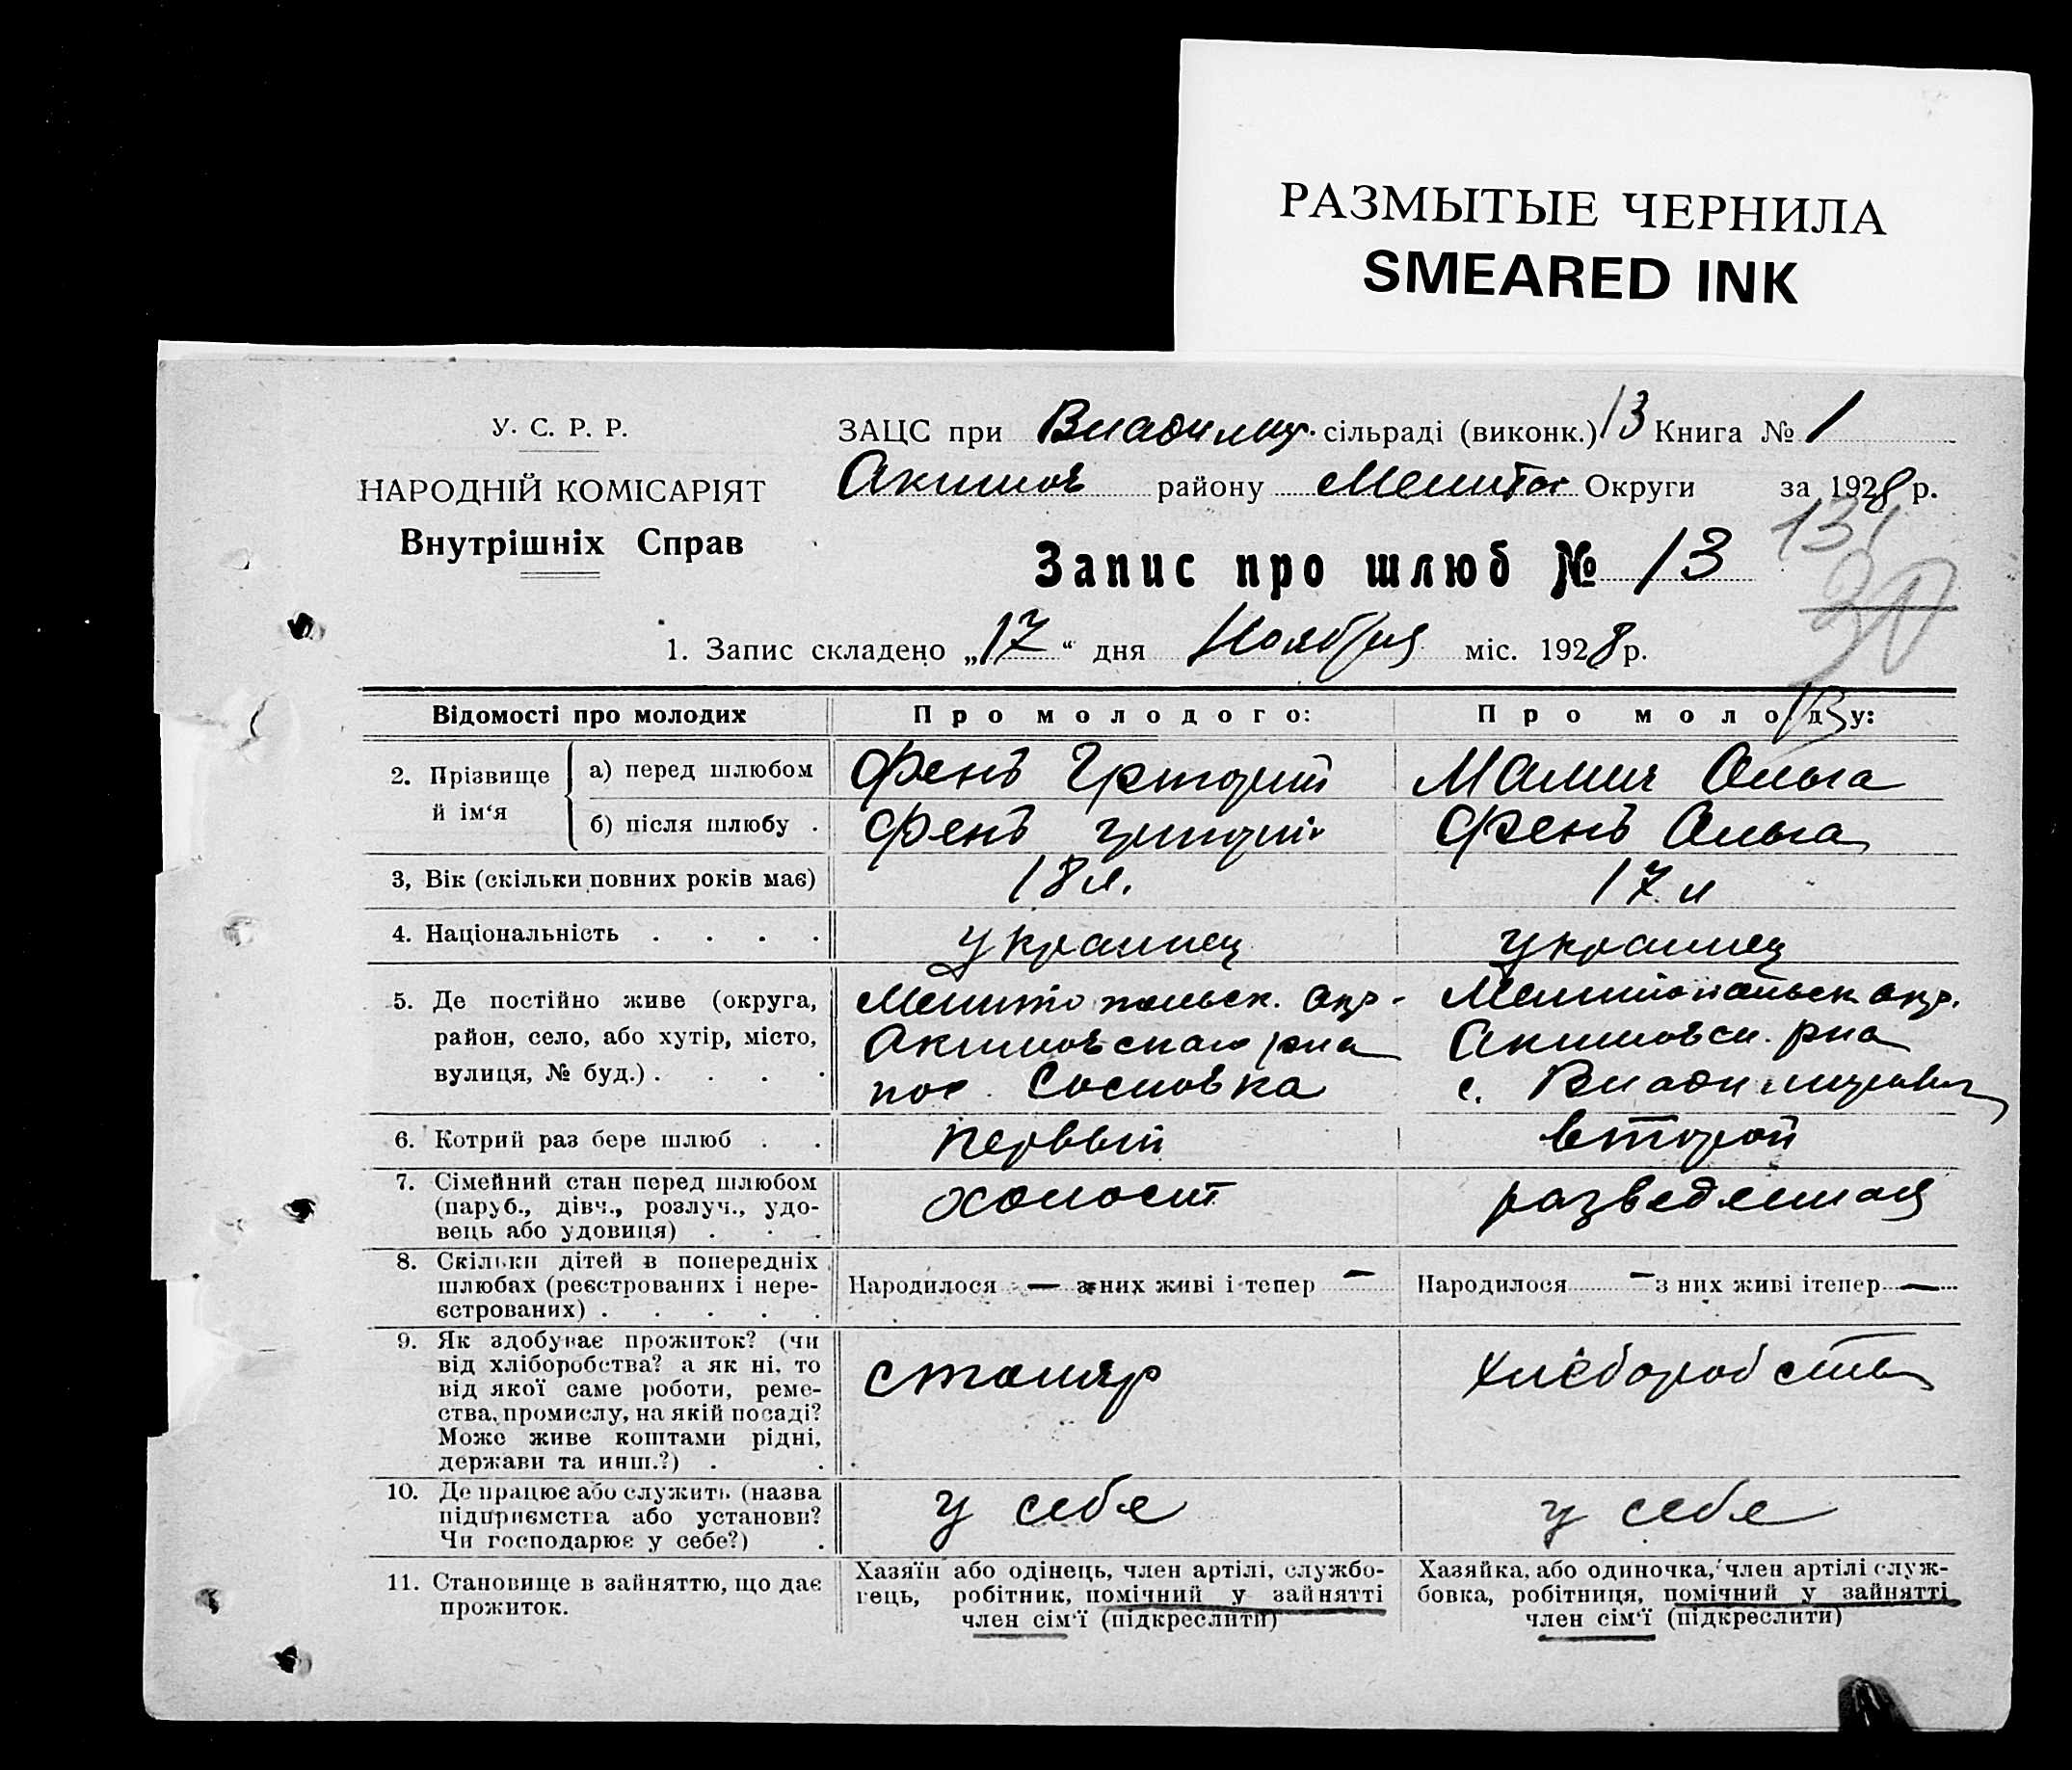 РАЗМЫТЫЕ ЧЕРНИЛА
SMEARED INK
У. С. Р. Р.
НАРОДНІЙ КОМІСАРІЯТ
Внутрішніх Справ
ЗАЦС при Владимир. сільраді (виконк.) 13 Книга № 1
Акимов району Мелитоп Округи за 1928 р.
131
30
Запис про шлюб № 13
1. Запис складено „17“ дня Ноября міс. 1928 р.
Відомості про молодих
Про молодого:
Про молоду:
13
2. Прізвище й ім‘я
а) перед шлюбом
Фень Григорий
Ольга
б) після шлюбу .
Фень Григорий
Фень Ольга
3, Вік (скільки повних років має)
18 л.
17 л
4. Національність . . . .
украинец
украинец
5. Де постійно живе (округа,
район, село, або хутір, місто,
вулиця, № буд.) . . . .
Мелитопольск. окр.
Акимовскаго рна
пос. Сосновка
Мелитопольск окр.
Акимовск. рна
с. Владимировка
6. Котрий раз бере шлюб . .
первый
второй
7. Сімейний стан перед шлюбом
(паруб., дівч., розлуч., удо-
вець або удовиця) . . .
холост
разведенная
8. Скільки дітей в попередніх
шлюбах (реєстрованих і нере-
єстрованих) . . . . .
Народилося — з них живі і тепер —
Народилося — з них живі і тепер —
9. Як здобуває прожиток? (чи
від хліборобства? а як ні, то
від якої саме роботи, реме-
ства, промислу, на якій посаді?
Може живе коштами рідні,
держави та инш.?) . .
столяр
хлебороб ство
10. Де працює або служить (назва
підприємства або установи?
Чи господарює у себе?) .
у себе
у себе
11. Становище в зайняттю, що дає
прожиток.
Хазяїн або одінець, член артілі, службо-
вець, робітник, помічний у зайнятті
член сім‘ї (підкреслити)
Хазяйка, або одиночка, член артілі служ-
бовка, робітниця, помічний у зайнятті
член сім‘ї (підкреслити)